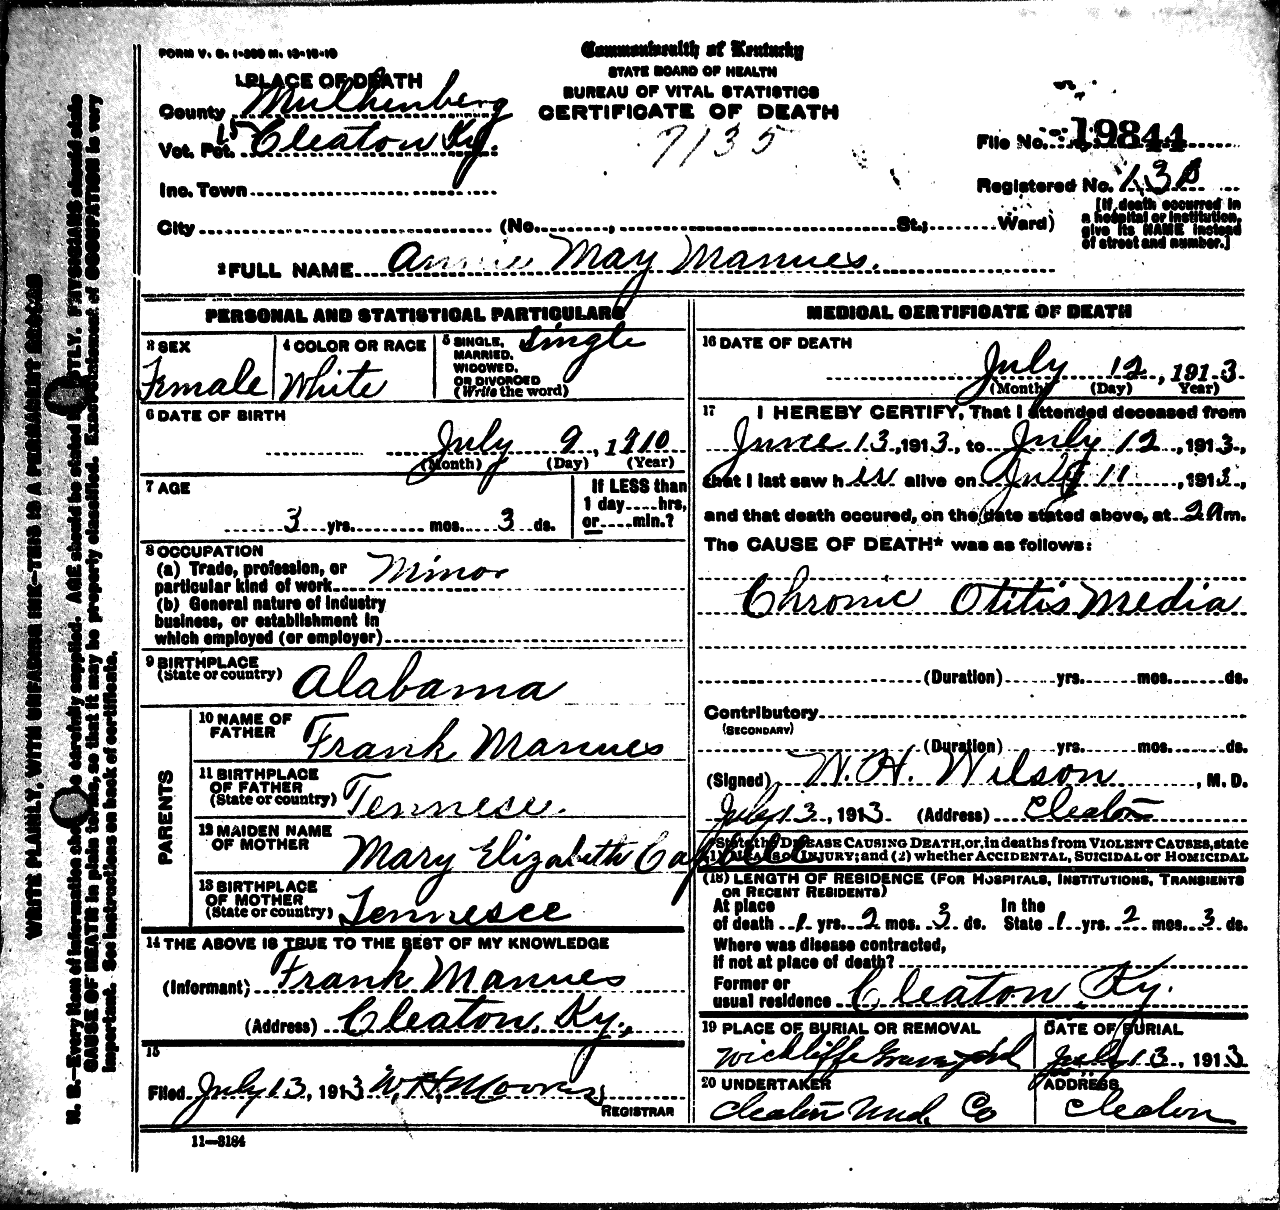 FORM V. S. 1-350 M. 12-16-10
Commonwealth of Kentucky
STATE BOARD OF HEALTH
BUREAU OF VITAL STATISTICS
CERTIFICATE OF DEATH
7135
1 PLACE OF DEATH
County Mulhenberg
Vot. Pct. 15 Cleaton Ky.
Inc. Town
City (No. , St.; Ward)
File No. 19844
Registered No.
[If death occurred in
a hospital or institution,
give its NAME instead
of street and number.]
2 FULL NAME Annie May Mannes.
PERSONAL AND STATISTICAL PARTICULARS
3 SEX
Female
4 COLOR OR RACE
White
5 SINGLE, MARRIED, WIDOWED, OR DIVORCED (Write the word)
Single
6 DATE OF BIRTH
July 9, 1910
(Month) (Day) (Year)
7 AGE
3 yrs. mos. 3 ds.
If LESS than
1 day hrs,
or min.?
8 OCCUPATION
(a) Trade, profession, or
particular kind of work Minor
(b) General nature of industry
business, or establishment in
which employed (or employer)
9 BIRTHPLACE
(State or country) Alabama
PARENTS
10 NAME OF
FATHER Frank Mannes
11 BIRTHPLACE
OF FATHER
(State or country) Tennese.
12 MAIDEN NAME
OF MOTHER Mary Elizabeth
13 BIRTHPLACE
OF MOTHER
(State or country) Tennesee
14 THE ABOVE IS TRUE TO THE BEST OF MY KNOWLEDGE
(Informant) Frank Mannes
(Address) Cleaton, Ky.,
15
Filed July 13, 1913 W. H. Moores
REGISTRAR
11—3184
MEDICAL CERTIFICATE OF DEATH
16 DATE OF DEATH
July 12, 1913
(Month) (Day) Year)
17 I HEREBY CERTIFY, That I attended deceased from
June 13, 1913, to July 12, 1913,
that I last saw h er alive on July 11, 1913,
and that death occured, on the date stated above, at 2 A m.
The CAUSE OF DEATH* was as follows:
Chronic Otitis Media
(Duration) yrs. mos. ds.
Contributory
(SECONDARY)
(Duration) yrs. mos. ds.
(Signed) W. H. Wilson, M. D.
July 13, 1913 (Address) Cleaton
State the DISEASE CAUSING DEATH, or, in deaths from VIOLENT CAUSES, state
(1) MEANS OF INJURY; and (2) whether ACCIDENTAL, SUICIDAL or HOMICIDAL
(18) LENGTH OF RESIDENCE (FOR HOSPITALS, INSTITUTIONS, TRANSIENTS
OR RECENT RESIDENTS)
At place
of death 1 yrs. 2 mos. 3 ds.
In the
State 1 yrs. 2 mos. 3 ds.
Where was disease contracted,
if not at place of death?
Former or
usual residence Cleaton, Ky.
19 PLACE OF BURIAL OR REMOVAL
Wickliffe
DATE OF BURIAL
July 13, 1913
20 UNDERTAKER
Cleaton Und. Co
ADDRESS
Cleaton
WRITE PLAINLY, WITH UNFADING INK—THIS IS A PERMANENT RECORD
N. B.—Every item of information should be carefully supplied. AGE should be stated EXACTLY. PHYSICIANS should state
CAUSE OF DEATH in plain terms, so that it may be properly classified. Exact statement of OCCUPATION is very
important. See instructions on back of certificate.